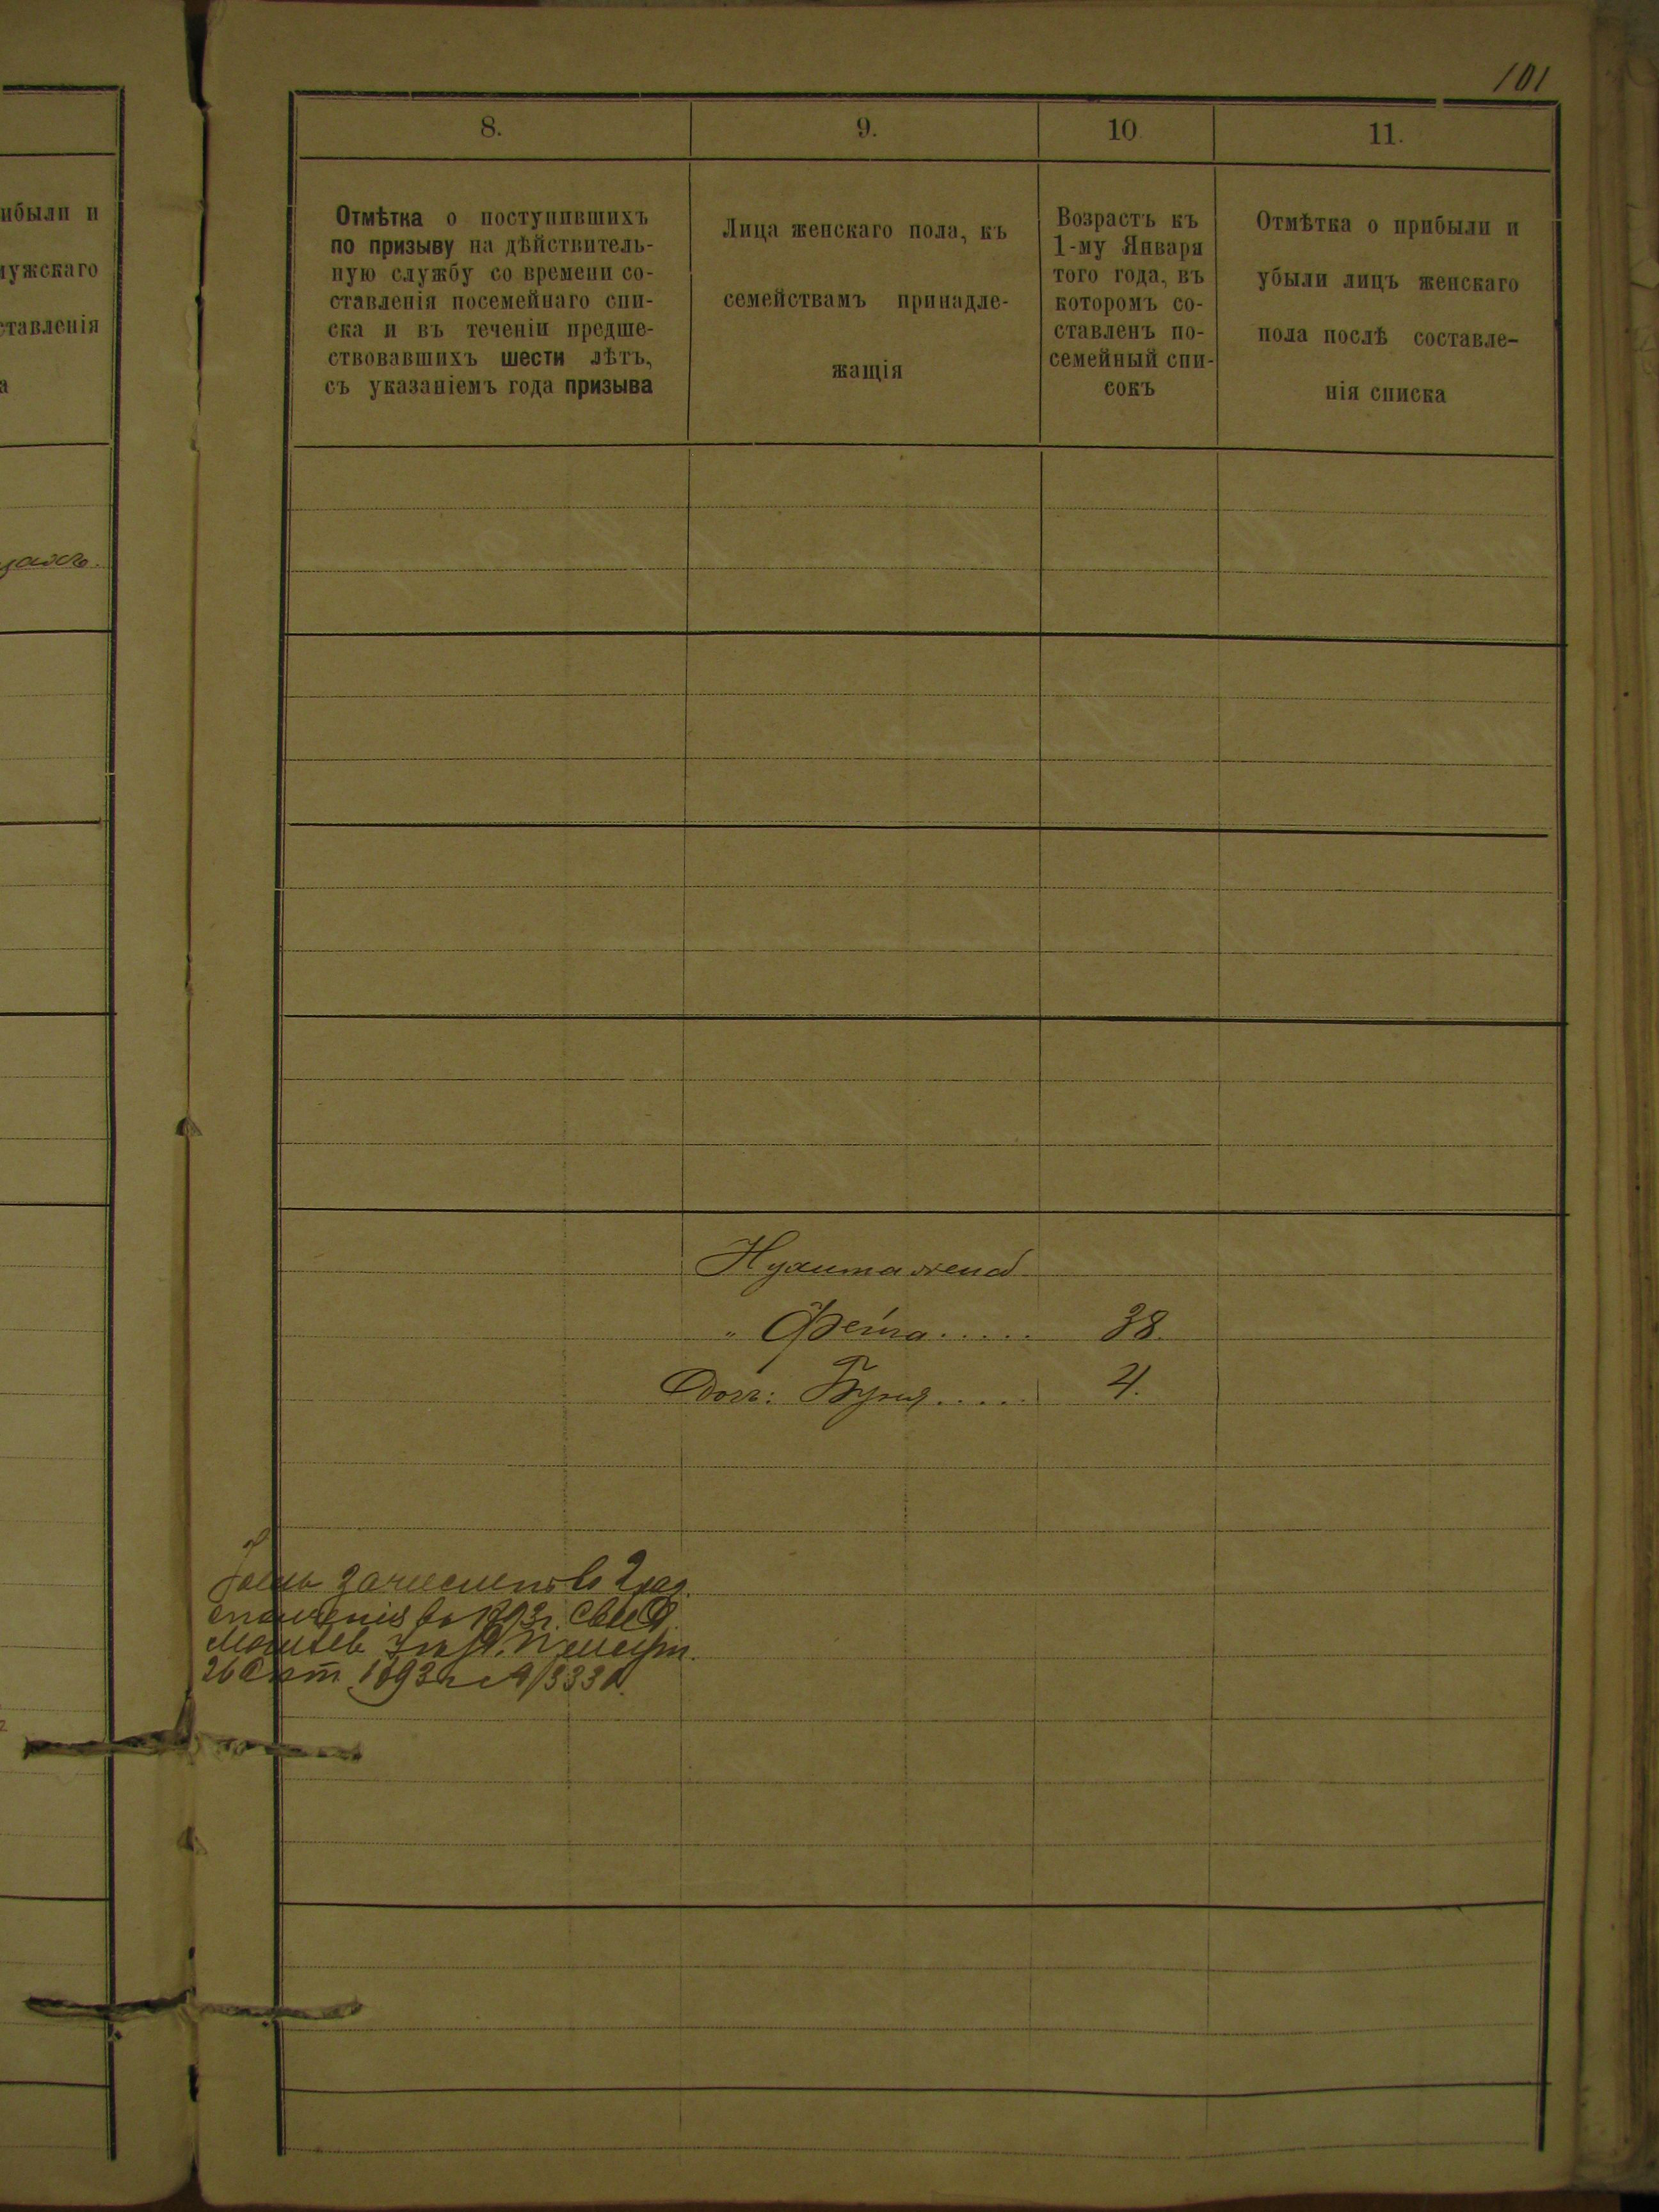 101
ибыли и
мужскаго
ставленія
а
8.
9.
10
11.
Отмѣтка о поступившихъ
по призыву на дѣйствитель-
ную службу со времени со-
ставленія посемейнаго спи-
ска и въ теченіи предше-
ствовавшихъ шести лѣтъ,
съ указаніемъ года призыва
Лица женскаго пола, къ
семействамъ принадле-
жащія
Возрастъ къ
1-му Января
того года, въ
которомъ со-
ставленъ по-
семейный спи-
сокъ
Отмѣтка о прибыли и
убыли лицъ женскаго
пола послѣ составле-
нія списка
Нухима жена
" Фейга ..... 38.
Дочь: Буня ..... 4.
зачисленъ въ 2 раз.
въ 1893 г.
26 1893 г. № 3331